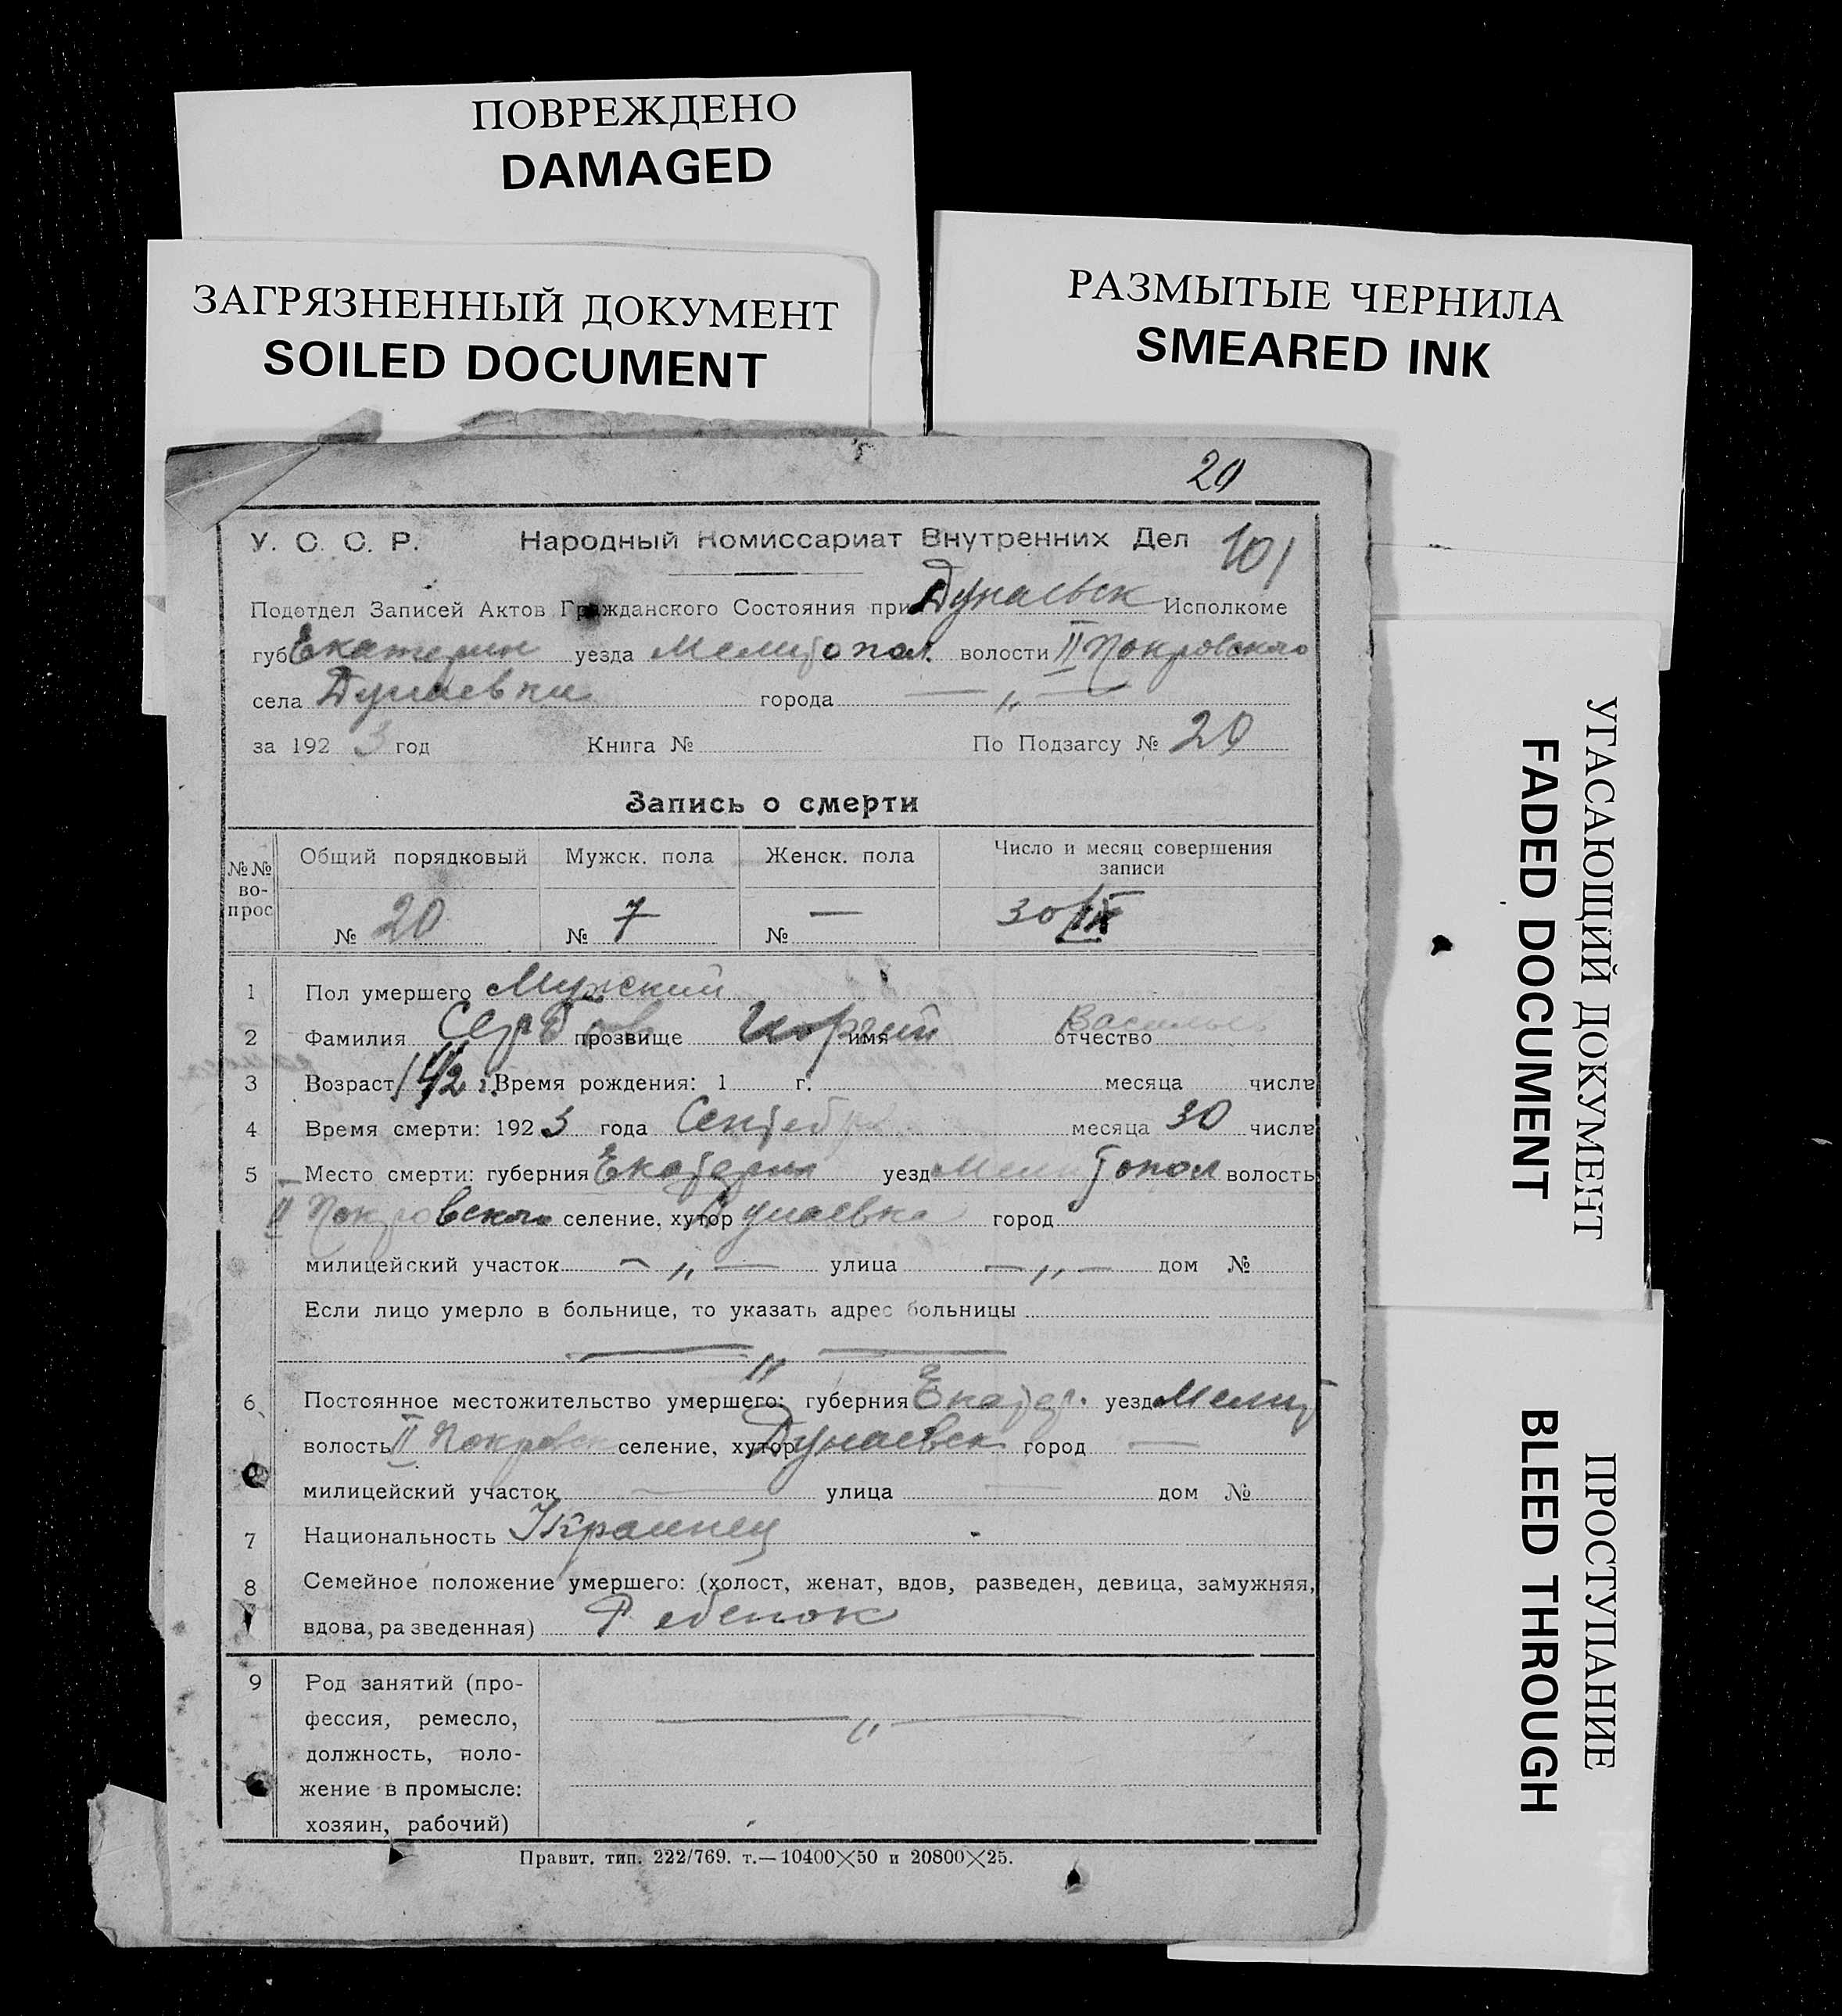 ПОВРЕЖДЕНО
DAMAGED
ЗАГРЯЗНЕННЫЙ ДОКУМЕНТ
SOILED DOCUMENT
РАЗМЫТЫЕ ЧЕРНИЛА
SMEARED INK
20
У. С. С. Р. Народный Комиссариат Внутренних Дел 101
Подотдел Записей Актов Гражданского Состояния при Дунаевск Исполкоме
губ Екатерин уезда Мелитопол. волости II Покровского
села Дунаевки города — " —
за 1923 год Книга № По Подзагсу № 20
Запись о смерти
№№ вопрос Общий порядковый Мужск. пола Женск. пола Число и месяц совершения записи
№ 20 № 7 № — 30/IX
1 Пол умершего Мужский
2 Фамилия Сербов прозвище имя отчество Васильев
3 Возраст 1 1/2 г. Время рождения: 1 г. месяца числа
4 Время смерти: 1923 года Сентебр месяца 30 числа
5 Место смерти: губерния Екатерин уезд Мелитопол волость
II Покровского селение, хутор Дунаевка город
милицейский участок — " — улица — " — дом №
Если лицо умерло в больнице, то указать адрес больницы
— " —
6 Постоянное местожительство умершего: губерния Екатер. уезд Мелит
волость II Покровск селение, хутор Дунаевск город —
милицейский участок — улица — дом №
7 Национальность Украинец
8 Семейное положение умершего: (холост, женат, вдов, разведен, девица, замужняя,
вдова, разведенная) Ребенок
9 Род занятий (про-
фессия, ремесло, — " —
должность, поло-
жение в промысле:
хозяин, рабочий)
Правит. тип. 222/769. т.—10400×50 и 20800×25.
УГАСАЮЩИЙ ДОКУМЕНТ
FADED DOCUMENT
ПРОСТУПАНИЕ
BLEED THROUGH